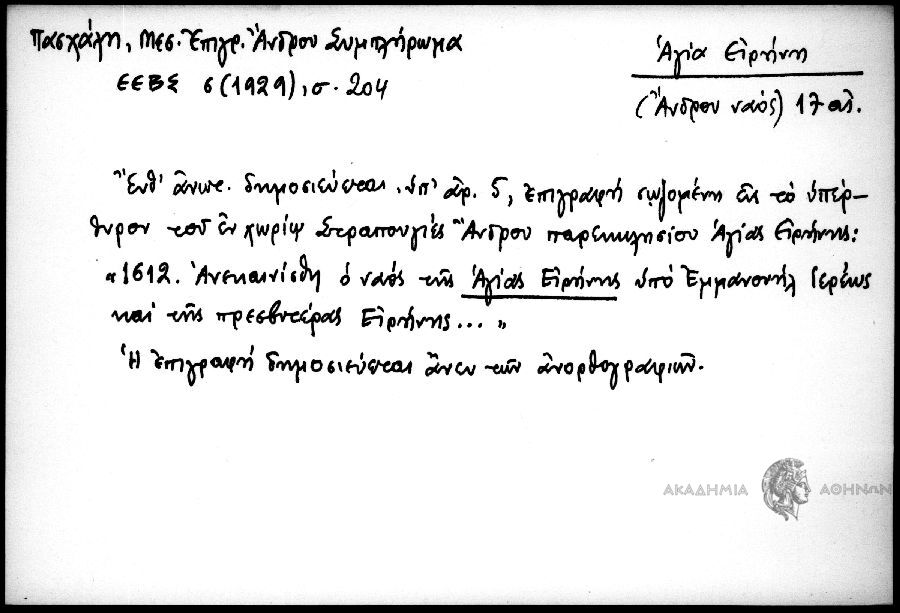 Πασχάλη, Μεσ. Ἐπιγρ. Ἄνδρου Συμπλήρωμα
ΕΕΒΣ 6 (1929), σ. 204
Ἁγία Εἰρήνη
(Ἄνδρου ναός) 17 αἰ.
Ἔνθ' ἄνωτ. δημοσιεύεται, ὑπ' ἀρ. 5, ἐπιγραφή σῳζομένη εἰς τὸ ὑπέρ-
θυρον τοῦ ἐν χωρίῳ Στραπουργιές Ἄνδρου παρεκκλησίου Ἁγίας Εἰρήνης:
«1612. Ἀνεκαινίσθη ὁ ναός τῆς Ἁγίας Εἰρήνης ὑπό Ἐμμανουήλ ἱερέως
καί τῆς πρεσβυτέρας Εἰρήνης... »
Ἡ ἐπιγραφή δημοσιεύεται ἄνευ τῶν ἀνορθογραφιῶν.
ΑΚΑΔΗΜΙΑ ΑΘΗΝΩΝ